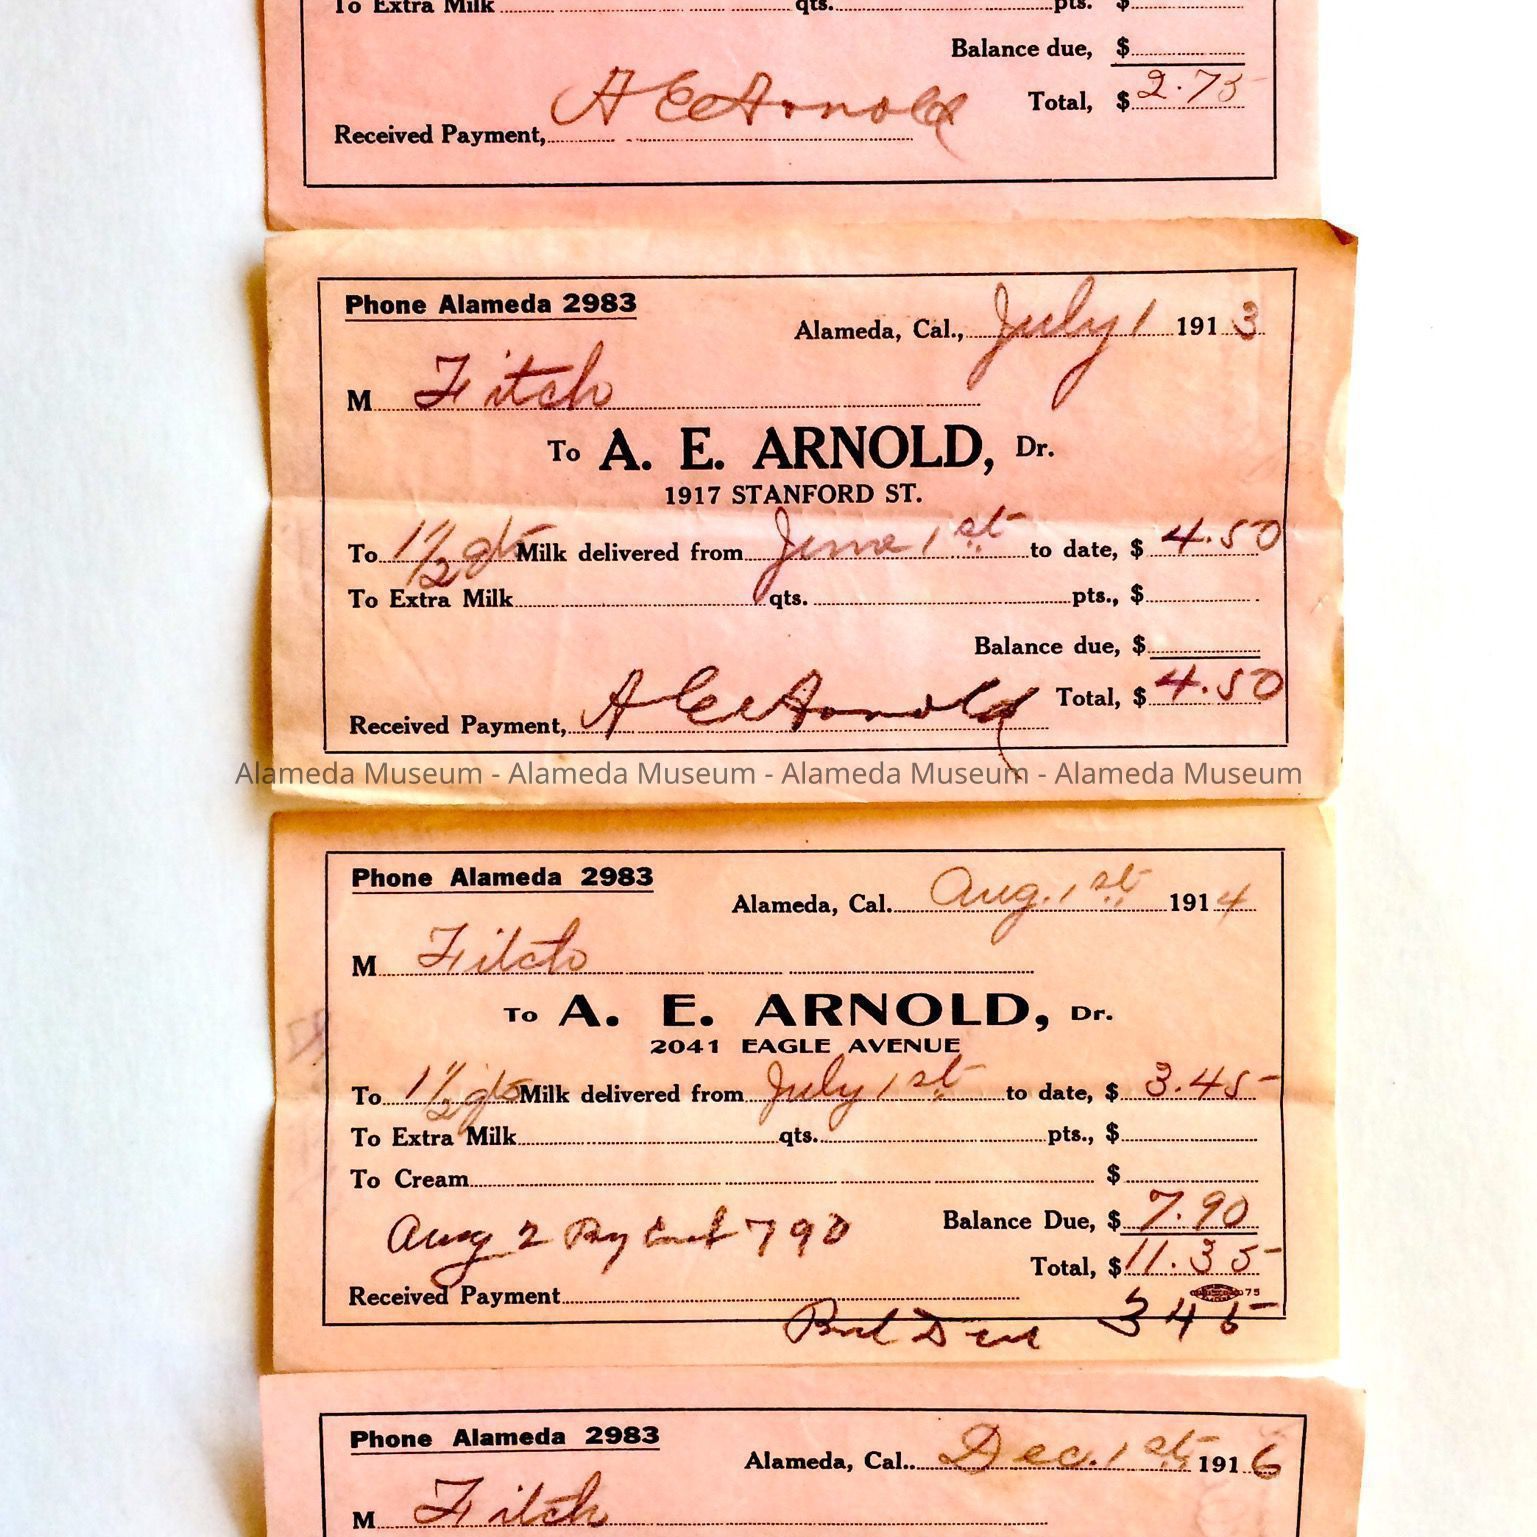 To Extra Milk qts. pts. $
Balance due, $
Total, $ 2.75
Received Payment, A E Arnold
Phone Alameda 2983
Alameda, Cal., July 1 1913
M Fitch
To A. E. ARNOLD, Dr.
1917 STANFORD ST.
To 1 1/2 qts Milk delivered from June 1st to date, $ 4.50
To Extra Milk qts. pts., $
Balance due, $
Total, $ 4.50
Received Payment, A E Arnold
Alameda Museum - Alameda Museum - Alameda Museum - Alameda Museum
Phone Alameda 2983
Alameda, Cal. Aug. 1st 1914
M Fitch
To A. E. ARNOLD, Dr.
2041 EAGLE AVENUE
To 1 1/2 qts Milk delivered from July 1st to date, $ 3.45
To Extra Milk qts. pts., $
To Cream $
Balance Due, $ 7.90
Aug 2 By Cash 790
Total, $ 11.35
Received Payment
75
Bal Due 345
Phone Alameda 2983
Alameda, Cal.. Dec. 1st 1916
M Fitch